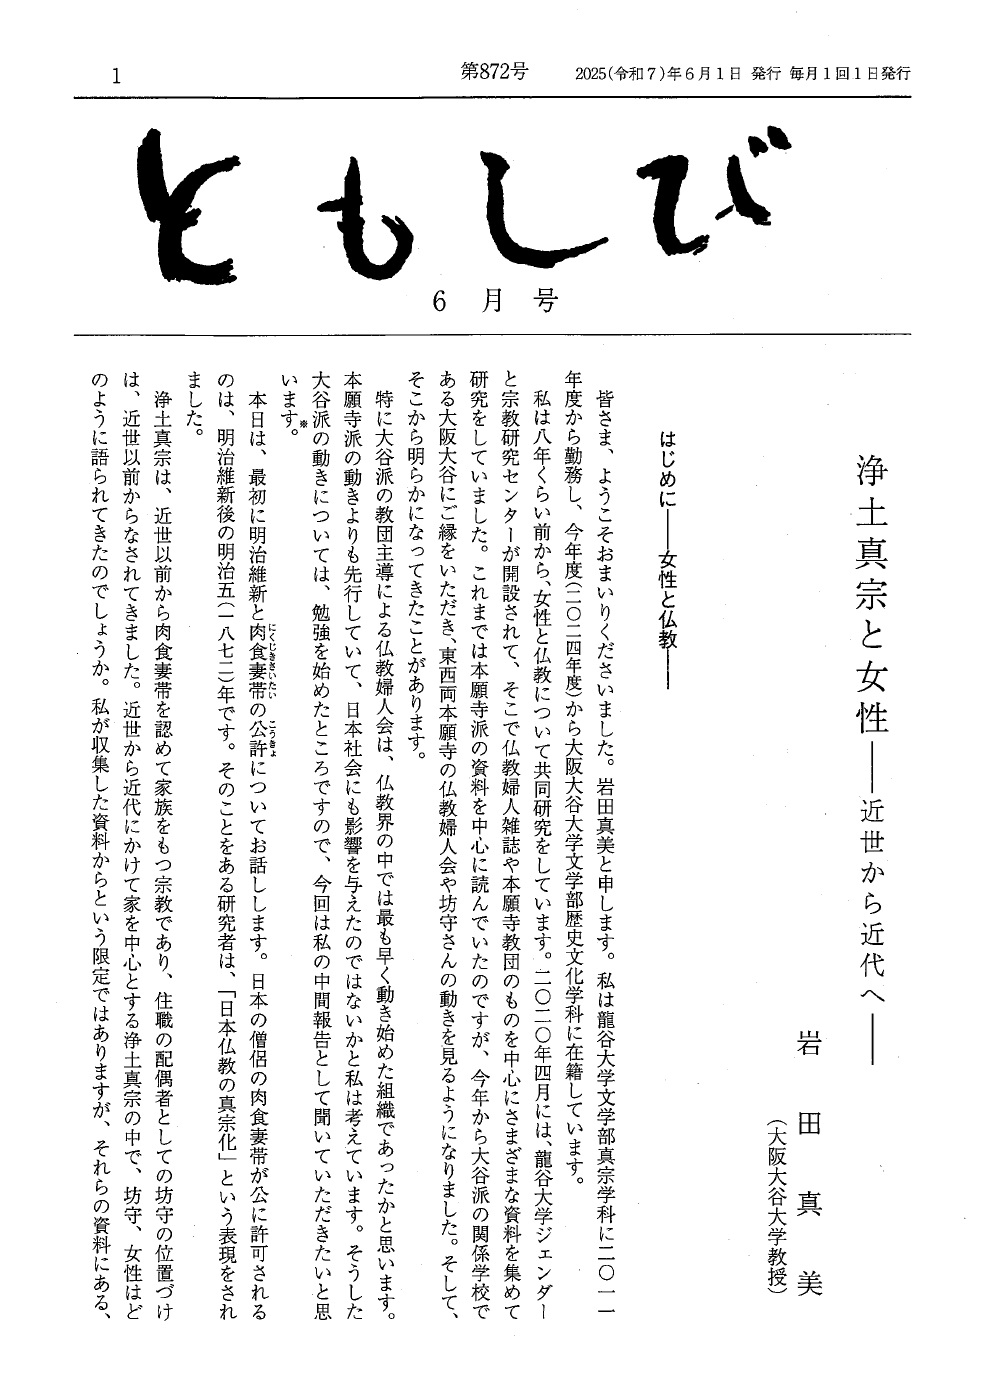 1
第872号
2025(令和7)年6月1日 発行 毎月1回1日発行
ともしび
6月号
浄土真宗と女性――近世から近代へ――
岩田真美
(大阪大谷大学教授)
はじめに――女性と仏教――
皆さま、ようこそおまいりくださいました。岩田真美と申します。私は龍谷大学文学部真宗学科に二〇一一
年度から勤務し、今年度(二〇二四年度)から大阪大谷大学文学部歴史文化学科に在籍しています。
私は八年くらい前から、女性と仏教について共同研究をしています。二〇二〇年四月には、龍谷大学ジェンダー
と宗教研究センターが開設されて、そこで仏教婦人雑誌や本願寺教団のものを中心にさまざまな資料を集めて
研究をしていました。これまでは本願寺派の資料を中心に読んでいたのですが、今年から大谷派の関係学校で
ある大阪大谷にご縁をいただき、東西両本願寺の仏教婦人会や坊守さんの動きを見るようになりました。そして、
そこから明らかになってきたことがあります。
特に大谷派の教団主導による仏教婦人会は、仏教界の中では最も早く動き始めた組織であったかと思います。
本願寺派の動きよりも先行していて、日本社会にも影響を与えたのではないかと私は考えています。そうした
大谷派の動きについては、勉強を始めたところですので、今回は私の中間報告として聞いていただきたいと思
います。※
本日は、最初に明治維新と肉食妻帯(にくじきさいたい)の公許(こうきょ)についてお話しします。日本の僧侶の肉食妻帯が公に許可される
のは、明治維新後の明治五(一八七二)年です。そのことをある研究者は、「日本仏教の真宗化」という表現をされ
ました。
浄土真宗は、近世以前から肉食妻帯を認めて家族をもつ宗教であり、住職の配偶者としての坊守の位置づけ
は、近世以前からなされてきました。近世から近代にかけて家を中心とする浄土真宗の中で、坊守、女性はど
のように語られてきたのでしょうか。私が収集した資料からという限定ではありますが、それらの資料にある、